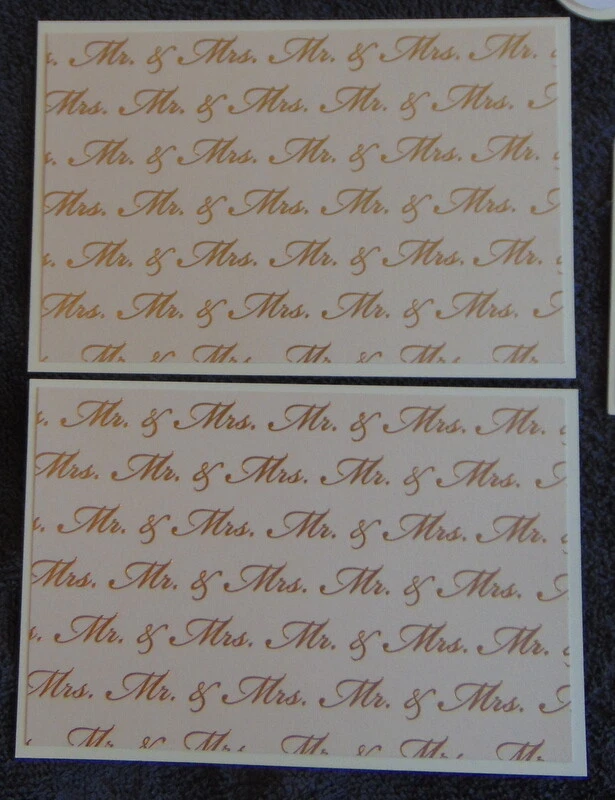 s. Mr. & Mrs. Mr. & Mrs. Mr.
Mrs. Mr. & Mrs. Mr. & Mrs.
s. Mr. & Mrs. Mr. & Mrs. Mr.
Mrs. Mr. & Mrs. Mr. & Mrs.
s. Mr. & Mrs. Mr. & Mrs. Mr.
Mrs. Mr. & Mrs. Mr. & Mrs.
Mr. & Mrs. Mr. & Mrs. Mr.
s. Mr. & Mrs. Mr. & Mrs. Mr. &
Mrs. Mr. & Mrs. Mr. & Mrs.
s. Mr. & Mrs. Mr. & Mrs. Mr.
Mrs. Mr. & Mrs. Mr. & Mrs.
s. Mr. & Mrs. Mr. & Mrs. Mr. &
Mrs. Mr. & Mrs. Mr. & Mrs.
Mr. & Mrs. Mr. & Mrs. Mr.